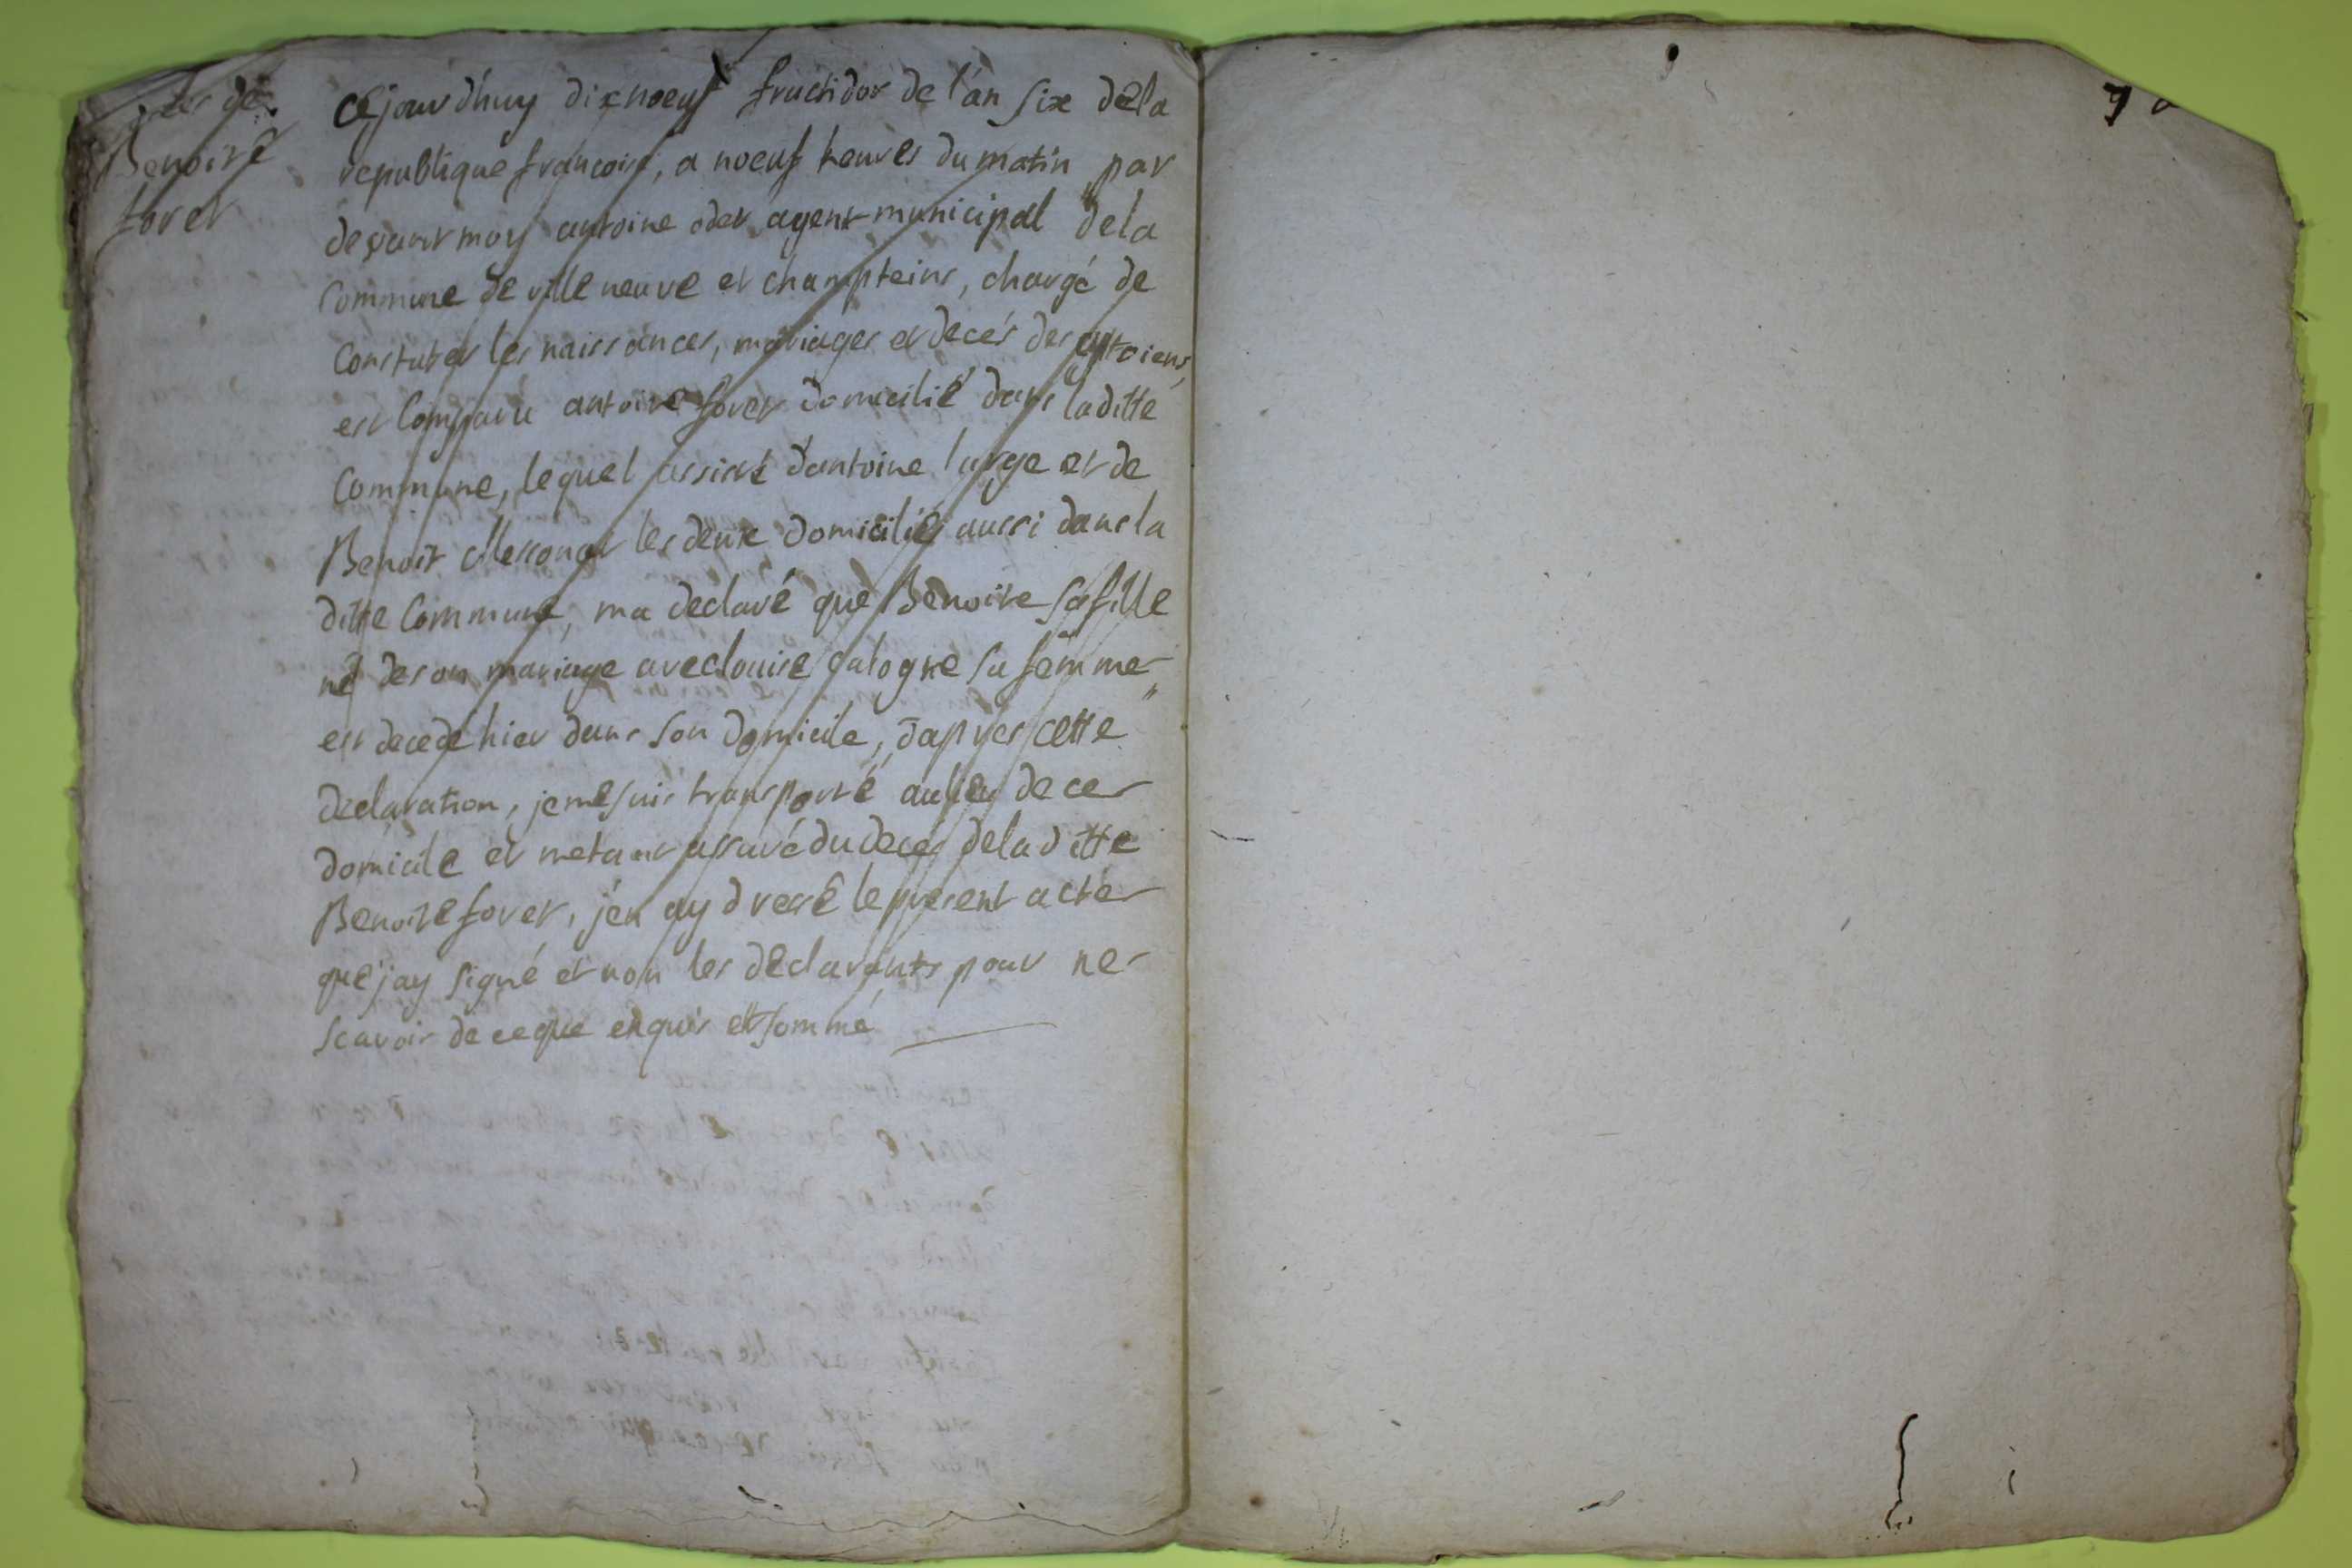 der de
Benoite
foret
Cejourdhuy dixnoeuf fructidor de l'an six dela
republique francoise, a noeuf heures du matin par
devant moy antoine oder agent municipal dela
Commune de ville neuve et champteins, chargé de
Constater les naissances, mariages et decés des cytoiens,
est Comparu antoine foret domicilié dans laditte
Commune, lequel assisté dantoine large et de
Benoit Messonat les deux domiciliés aussi dans la
ditte Commune, ma declaré que Benoite sa fille
né deson mariage aveclouise galogne sa femme
est decedé hier dans son domicile, dapres cette
declaration, jemesuis transporté aulieu dece
domicile et metant assuré du decés deladitte
Benoite foret, jén ay dressé lepresent acte
que jay signé et non les declarants pour ne
scavoir de ceque enquis et sommé